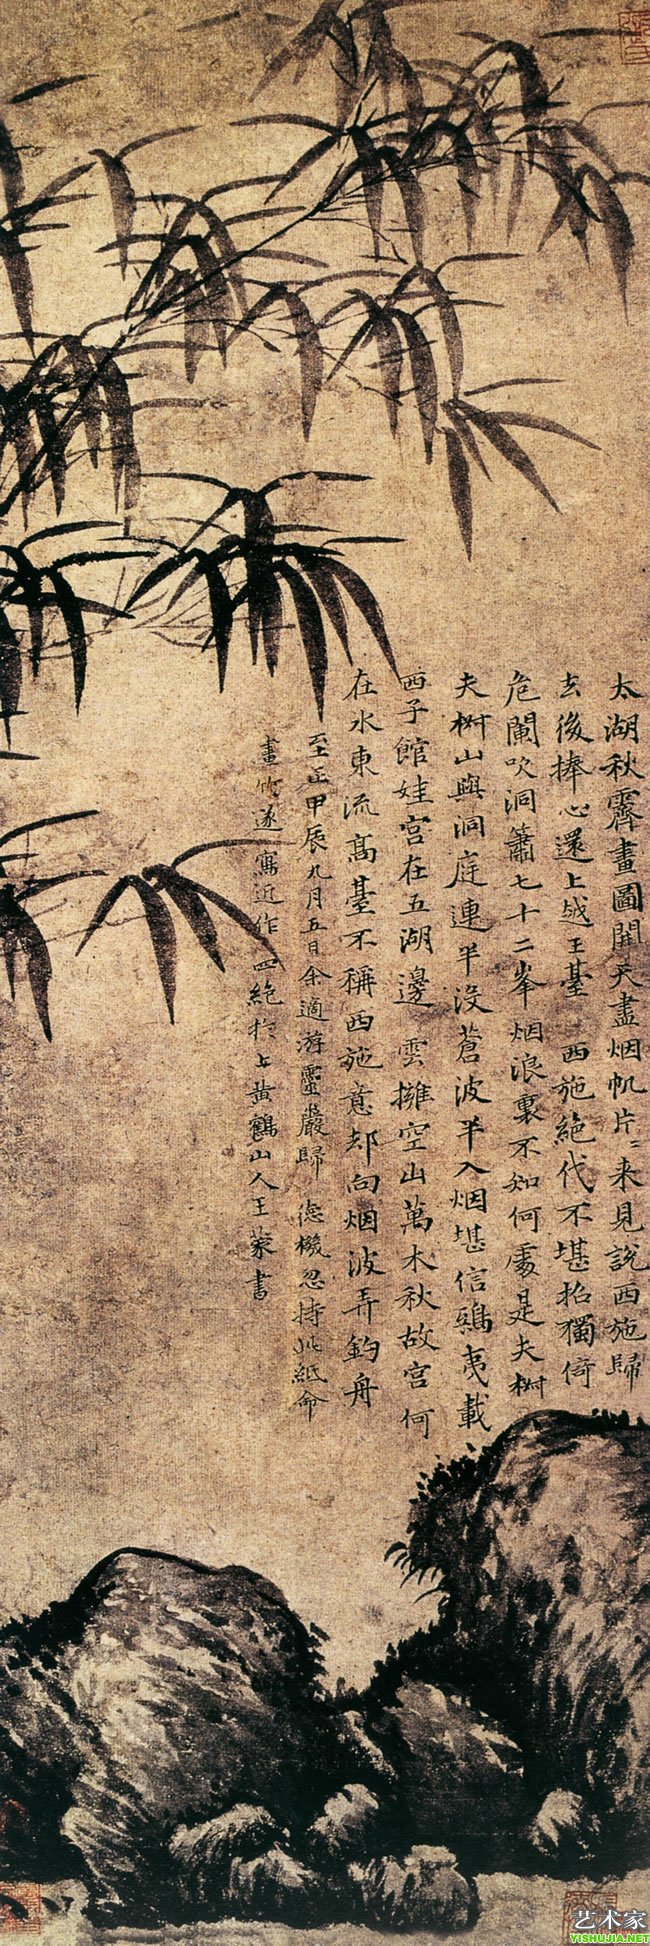 太湖秋霽畫圖開天盡烟帆片〻来見說西施歸
去後捧心還上越王臺 西施絕代不堪招獨倚
危闌吹洞簫七十二峯烟浪裏不知何處是夫椒
夫椒山與洞庭連半没蒼波半入烟堪信鴟夷載
西子館娃宫在五湖邊 雲擁空山萬木秋故宫何
在水東流髙臺不稱西施意却向烟波弄釣舟
至正甲辰九月五日余適游靈巖歸 德機忽持此紙命
畫竹遂寫近作四絶於上黄鶴山人王蒙書
艺术家
YISHUJIA.NET